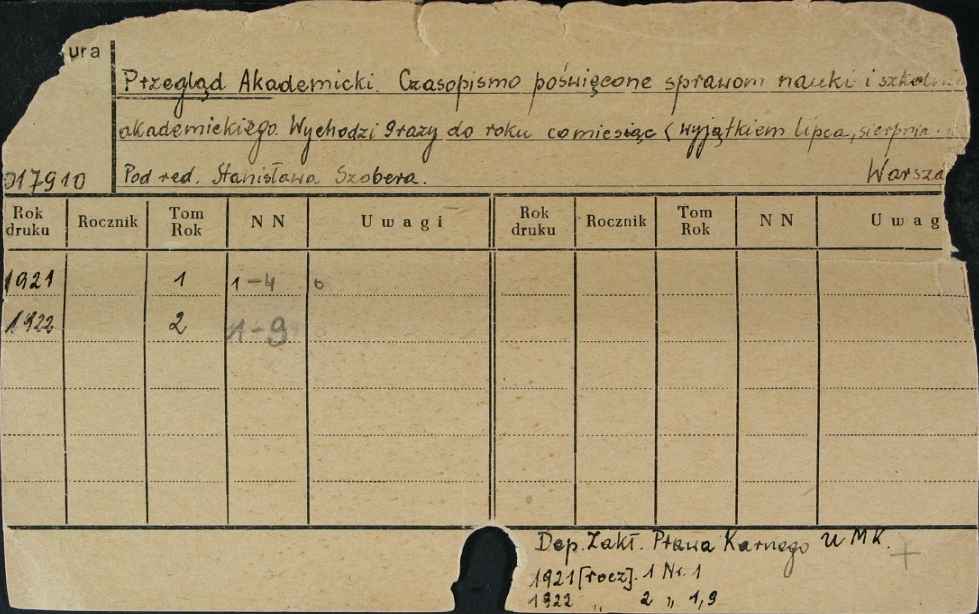 ura
Przegląd Akademicki. Czasopismo poświęcone sprawom nauki i
akademickiego. Wychodzi 9 razy do roku co miesiąc (wyjątkiem lipca, sierpnia
Pod red. Stanisława Szobera. Warsza
017910
Rok druku Rocznik Tom Rok NN Uwagi Rok druku Rocznik Tom Rok NN Uwag
1921 1 1-4
1922 2 1-9
Dep. Zakł. Prawa Karnego UMK.
1921 [rocz]. 1 Nr. 1
1922 „ 2 „ 1,9